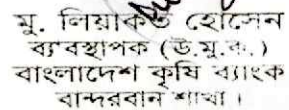 মু. লিয়াকত হোসেন
ব্যবস্থাপক (উ.মু.ক.)
বাংলাদেশ কৃষি ব্যাংক
বান্দরবান শাখা।